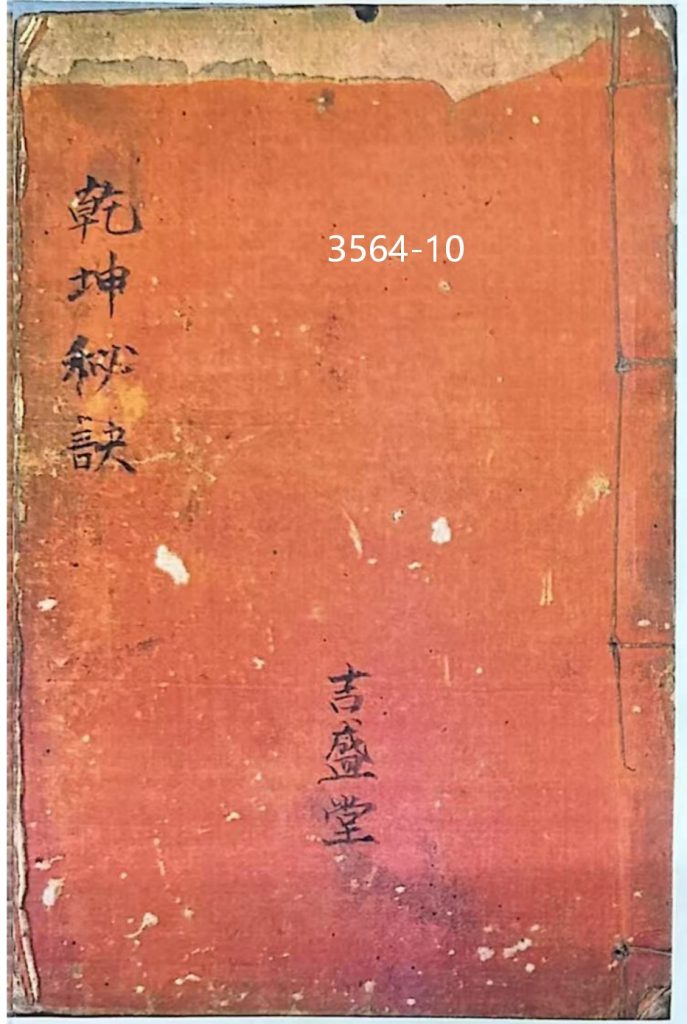 乾坤秘訣
3564-10
吉盛堂